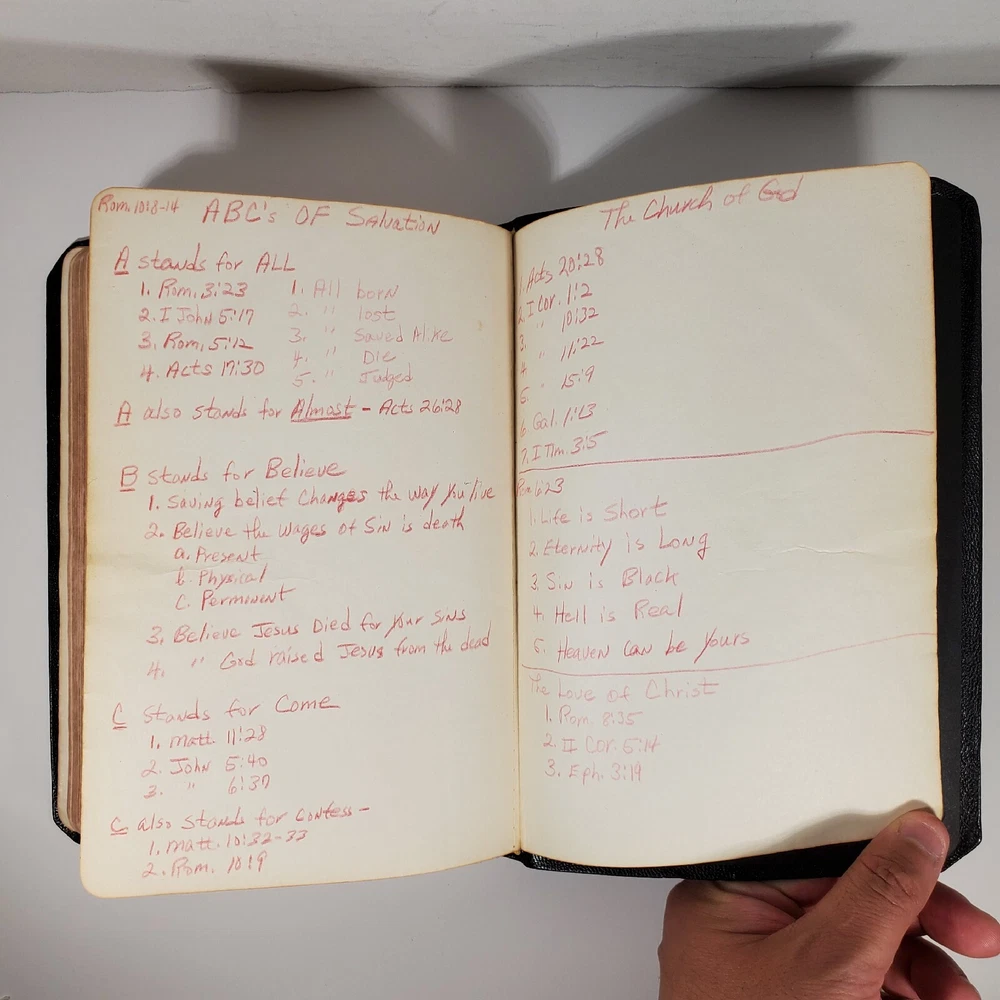 Rom. 10:8-14
ABC's OF Salvation
A stands for ALL
1. Rom. 3:23
2. I John 5:17
3. Rom. 5:12
4. Acts 17:30
1. All born
2. " lost
3. " Saved Alike
4. " Die
5. " Judged
A also stands for Almost - Acts 26:28
B stands for Believe
1. Saving belief Changes the way you live
2. Believe the wages of Sin is death
a. Present
b. Physical
c. Permanent
3. Believe Jesus Died for your sins
4. " God raised Jesus from the dead
C stands for Come
1. Matt. 11:28
2. John 5:40
3. " 6:37
C also stands for Confess -
1. Matt. 10:32-33
2. Rom. 10:9
The Church of God
1. Acts 20:28
2. I Cor. 1:2
3. " 10:32
4 " 11:22
5 " 15:9
6 Gal. 1:13
7. I Tim. 3:5
Rom 6:23
1. Life is Short
2. Eternity is Long
3. Sin is Black
4. Hell is Real
5. Heaven can be yours
The Love of Christ
1. Rom. 8:35
2. II Cor. 5:14
3. Eph. 3:19